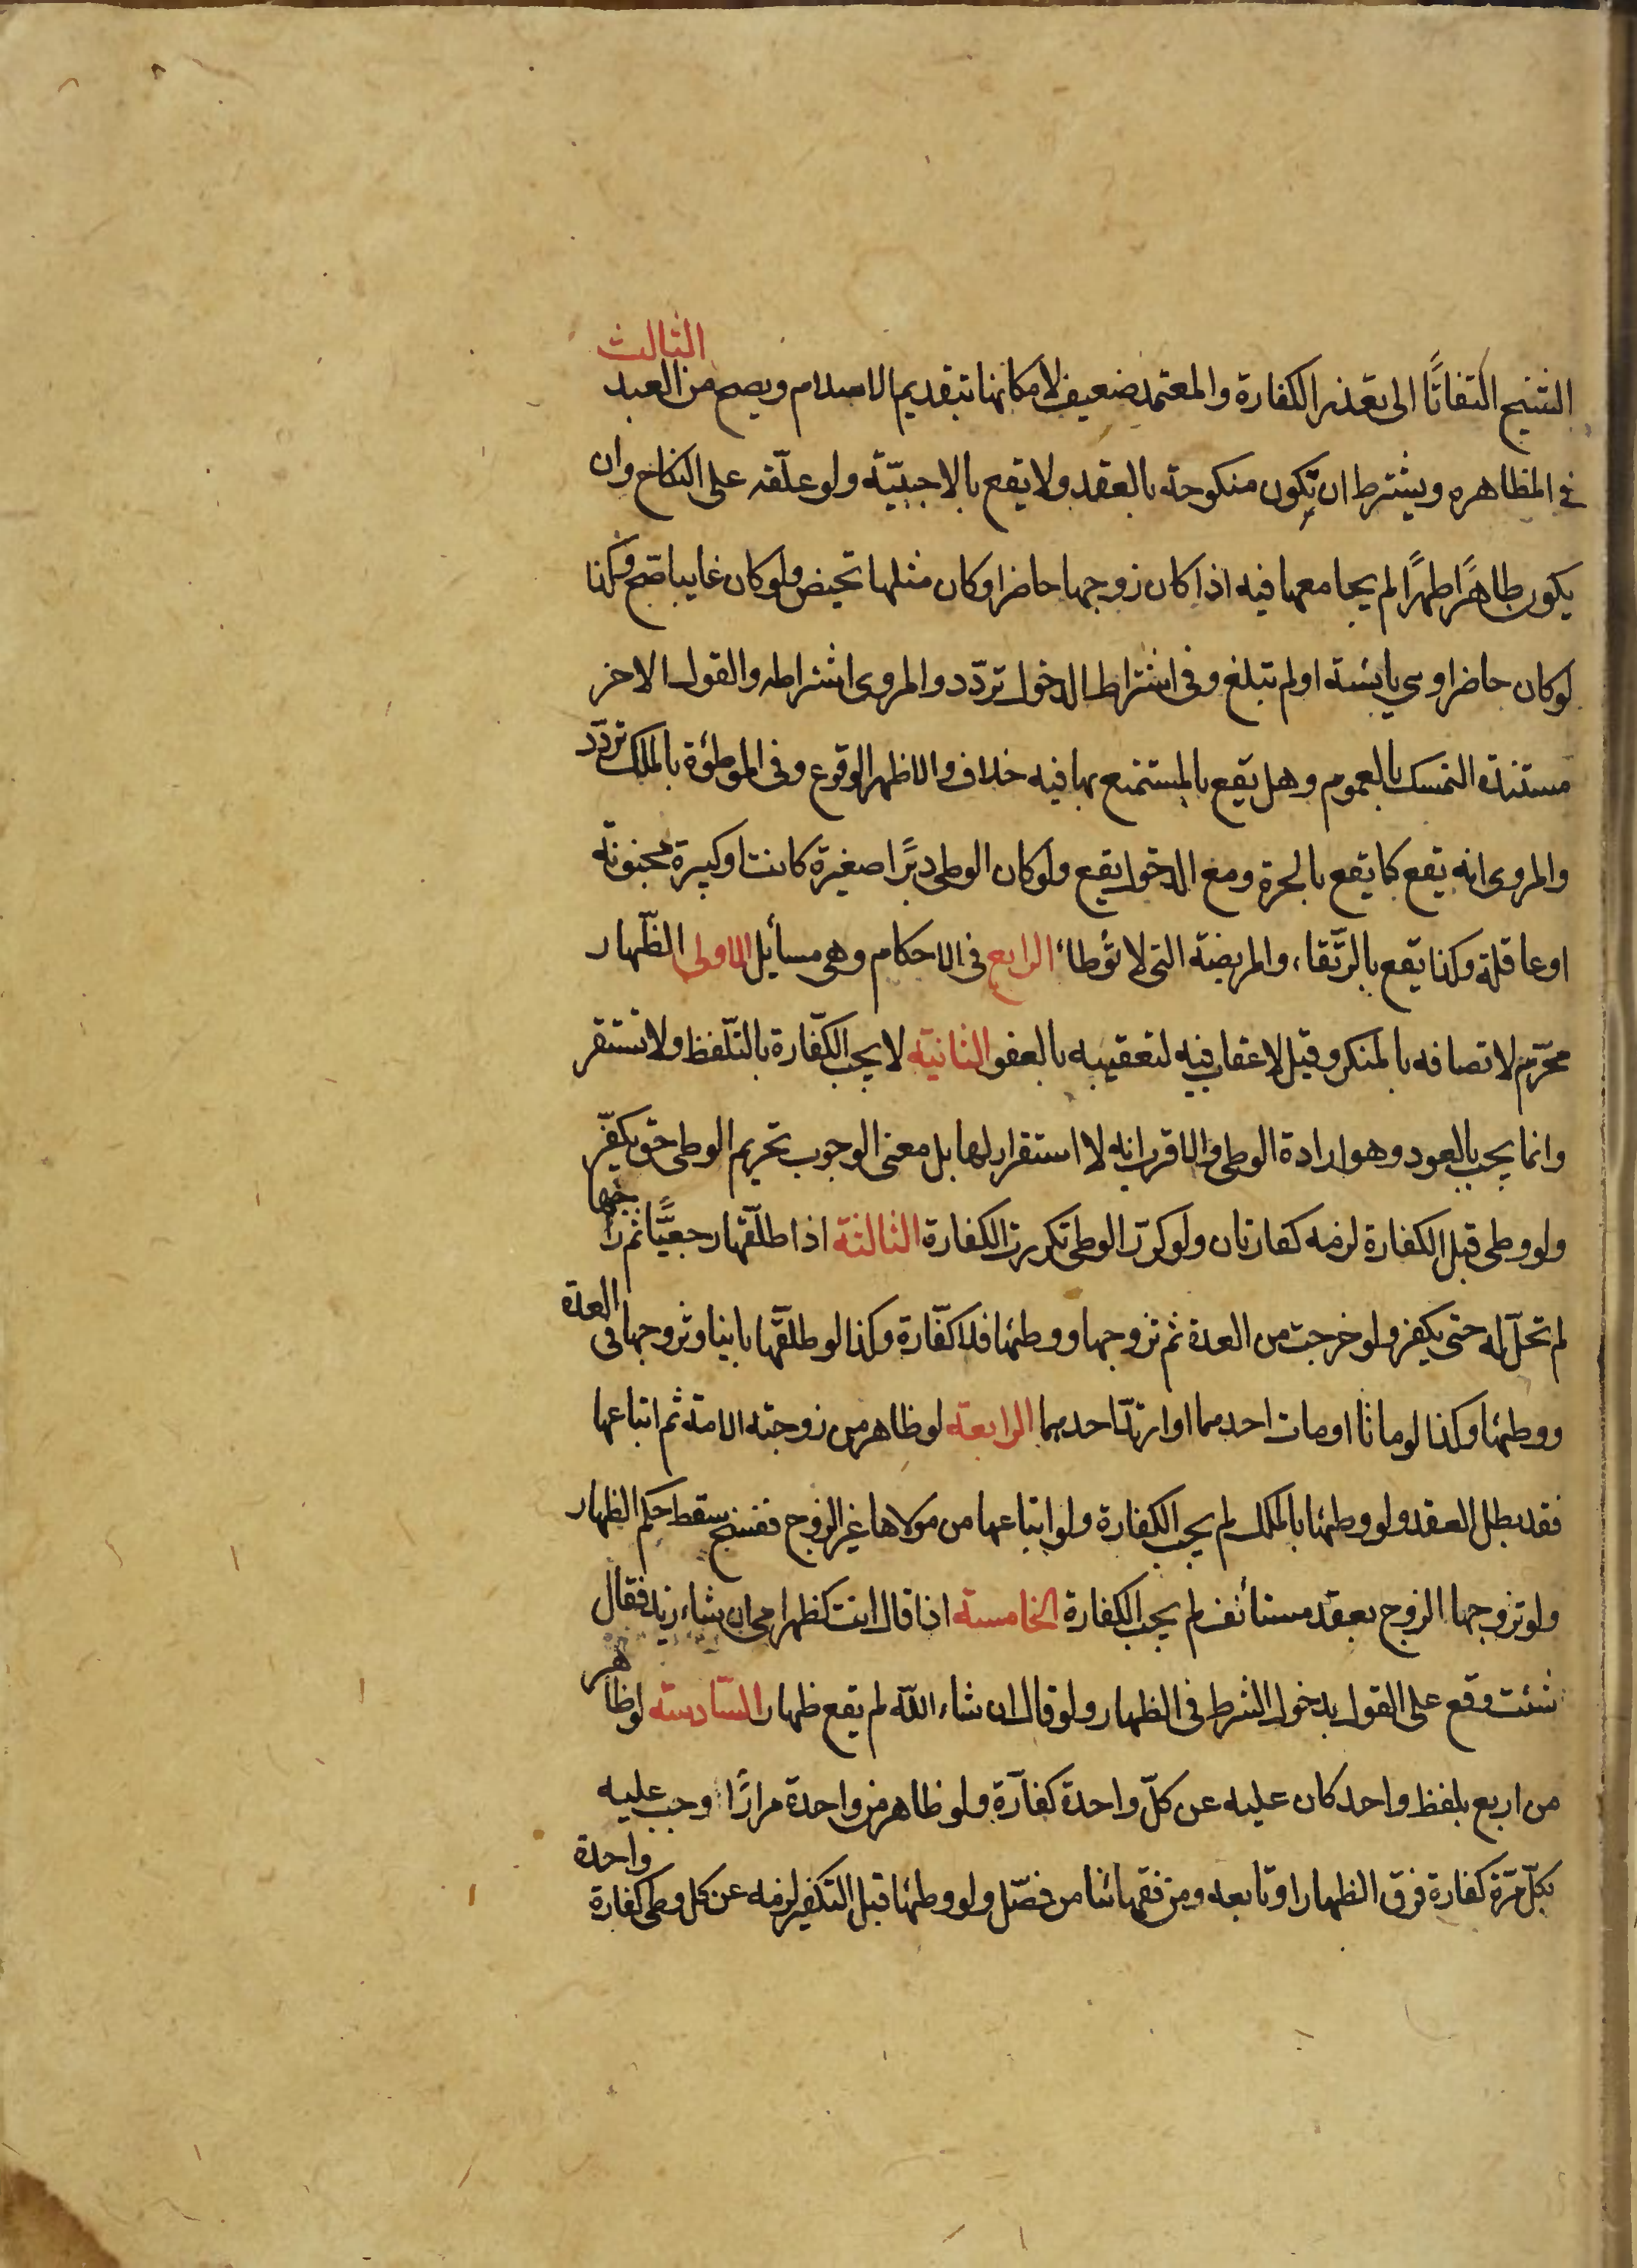 الشيخ التفاتًا الى تعذر الكفارة والمعتمد ضعيف لامكانها بتقديم الاسلام ويصح من العبد الثالث
فى المظاهره ويشترط ان تكون منكوحة بالعقد ولا يقع بالاجنبيّة ولو علّقه على النكاح وان
يكون طاهرًا طهرًا لم يجامعها فيه اذا كان زوجها حاضرا وكان مثلها تحيض ولو كان غايبا صح وكذا
لو كان حاضرا وهى يائسة او لم تبلغ وفى اشتراط الدخول تردّد والمروى اشتراطه والقول الاخر
مستنده التمسك بالعموم وهل يقع بالمستمتع بها فيه خلاف والاظهر الوقوع وفى الموطئوة بالملك تردّد
والمروى انه يقع كما يقع بالحرة ومع الدخول يقع ولو كان الوطى دبرًا صغيرة كانت او كبيرة مجنونة
او عاقلة وكذا يقع بالرّتقاء والمريضة التى لا تؤطأ الرابع فى الاحكام وهى مسائل الاولى الظّهار
محرّم لاتصافه بالمنكر وقيل لا عقاب فيه لتعقيبه بالعفو الثانية لا يجب الكفّارة بالتلّفظ ولا تستقر
وانما يجب بالعود وهو ارادة الوطى والاقرب انه لا استقرار لها بل معنى الوجوب تحريم الوطى حتى يكفّر
ولو وطى قبل الكفارة لزمه كفارتان ولو كرّر الوطى تكررت الكفارة الثالثة اذا طلّقها رجعيًّا ثم راجعها
لم تحلّ له حتى يكفر ولو خرجت من العدة ثم تزوجها ووطئها فلا كفّارة وكذا لو طلقّها باينا وتزوجها فى العدة
ووطئها وكذا لو ماتا او مات احدهما او ارتدّ احدهما الرابعة لو ظاهر من زوجته الامة ثم ابتاعها
فقد بطل العقد ولو وطئها بالملك لم يجب الكفارة ولو ابتاعها من مولاها غير الزوج ففسخ سقط حكم الظهار
ولو تزوجها الزوج بعقد مستأنف لم يجب الكفارة الخامسة اذا قال انت كظهر امى ان شاء زيد فقال
شئت وقع على القول بدخول الشرط فى الظهار ولو قال ان شاء الله لم يقع ظهار السّادسة لو ظاهر
من اربع بلفظ واحد كان عليه عن كلّ واحدة كفّارة ولو ظاهر من واحدة مرارًا وجب عليه
بكلّ مرّة كفارة فرق الظهار او تابعه ومن فقهائنا من فصّل ولو وطئها قبل التكفير لزمه عن كل وطى كفارة واحدة